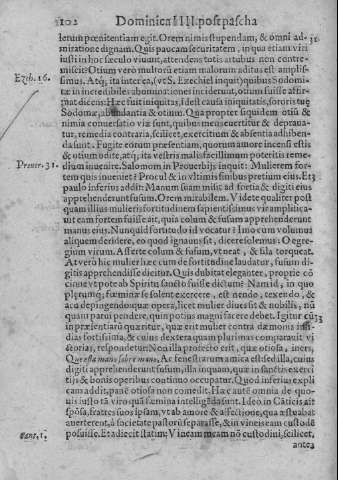 1102 Dominica IIII. post pascha
lerum pœnitentiam egit. O rem nimis stupendam, & omni ad-
miratione dignam. Quis paucam securitatem, in qua etiam viri
iusti in hoc sæculo viuunt, attendens totis artubus non contre-
miscit? Otium vero multorum etiam malorum aditus est amplis-
simus. Atq; ita interea,
Ezih. 16.
Ezechiel inquit) quibus Sodomi-
tæ in incredibiles abominationes inciderint, otium fuisse affir-
mat dicens: Hæc fuit iniquitas, id est causa iniquitatis, sororis tuę
Sodomæ, abundantia & otium. Qua propter siquidem otiū &
nimia conuersatio viæ sunt, quibus mens euertitur & deprauа-
tur, remedia contraria, scilicet, exercitium & absentia adhiben-
da sunt. Fugite eorum præsentiam, quorum amore incensi estis
& otium odite, atq; ita vestris malis facillimum poteritis reme-
dium inuenire.
Prouer. 31.
Salomon in Prouerbijs inquit: Mulierem for-
tem quis inueniet? Procul & in vltimis finibus pretium eius. Et
paulo inferius addit: Manum suam misit ad fortia & digiti eius
apprehenderunt fusum. O rem mirabilem. Videte qualiter post
quam illius mulieris fortitudinem sapientissimus vir amplifica-
uit eam fortem fuisse ait, quia colum & fusum apprehenderunt
manus eius. Nunquid fortitudo id vocatur? Imo cum volumus
aliquem deridere, eo quod ignauus sit, dicere solemus: O egre-
gium virum. Afferte colum & fusum, vt neat, & fila torqueat.
At vero hic mulier hæc cum de fortitudine laudatur, fusum di-
gitis apprehendisse dicitur. Quis dubitat eleganter, proprie cō
cinne vt pote ab Spiritu sancto fuisse dictum? Nam id, in quo
plerumq; fæminæ se solent exercere, est nendo, texendo, &
acu depingendo quæ opera, licet mulier diues sit & nobilis, nū
quam parui pendere, quin potius magni facere debet. Igitur cū
in præsentiarū quæritur, quæ erit mulier contra dæmonis insi-
dias fortissima, & cuius dextera quam plurimas comparauit vi
ctorias, respondetur: Non illa profecto erit, quæ otiosa, iners,
Ac fenestrarum amica est sed illa, cuius
digiti apprehenderunt fusum, illa inquam, quæ in sanctis exerci
tijs & bonis operibus continuo occupatur. Quod inferius expli
cam addit, panē otiosa non comedit. Hæc autē omnia de quo-
uis iusto tā viro quā fæmina intelligēda sunt. Ideo in Cāticis ait
spōsa, fratres suos ipsam, vt ab amore & affectione, qua æstuabat
auerterent, à societate pastorū separasse, & in vineis eam custodē
posuisse. Et adiecit statim:
Cant. 1.
Vineam meam nō custodiui, scilicet,
antea